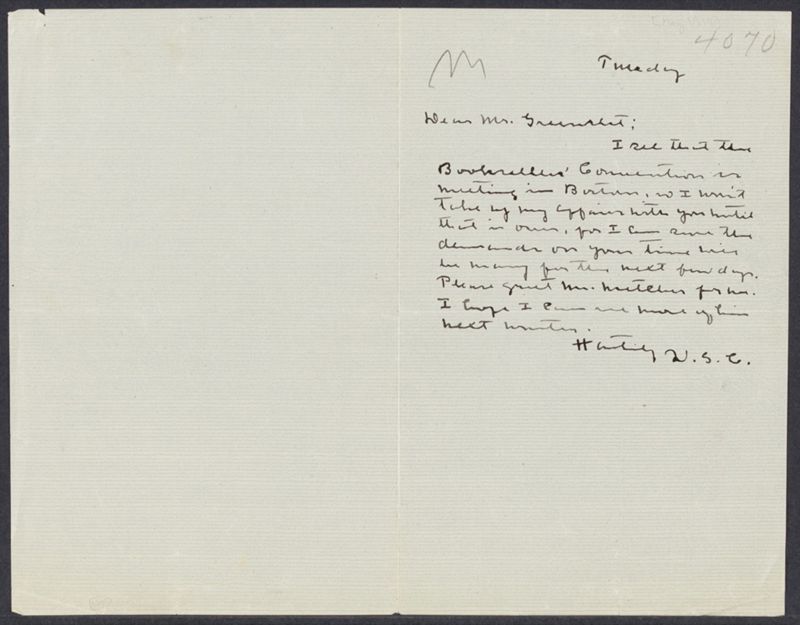 4070
Tuesday
Dear Mr. Greenslet;
I see that the
Booksellers' Convention is
meeting in Boston, so I won't
take up my affairs with you until
that is over, for I am sure the
demands on your time will
be many for the next few days.
Please greet Mr. Mitchell for me.
I hope I can see more of him
next winter.
Heartily W. S. C.